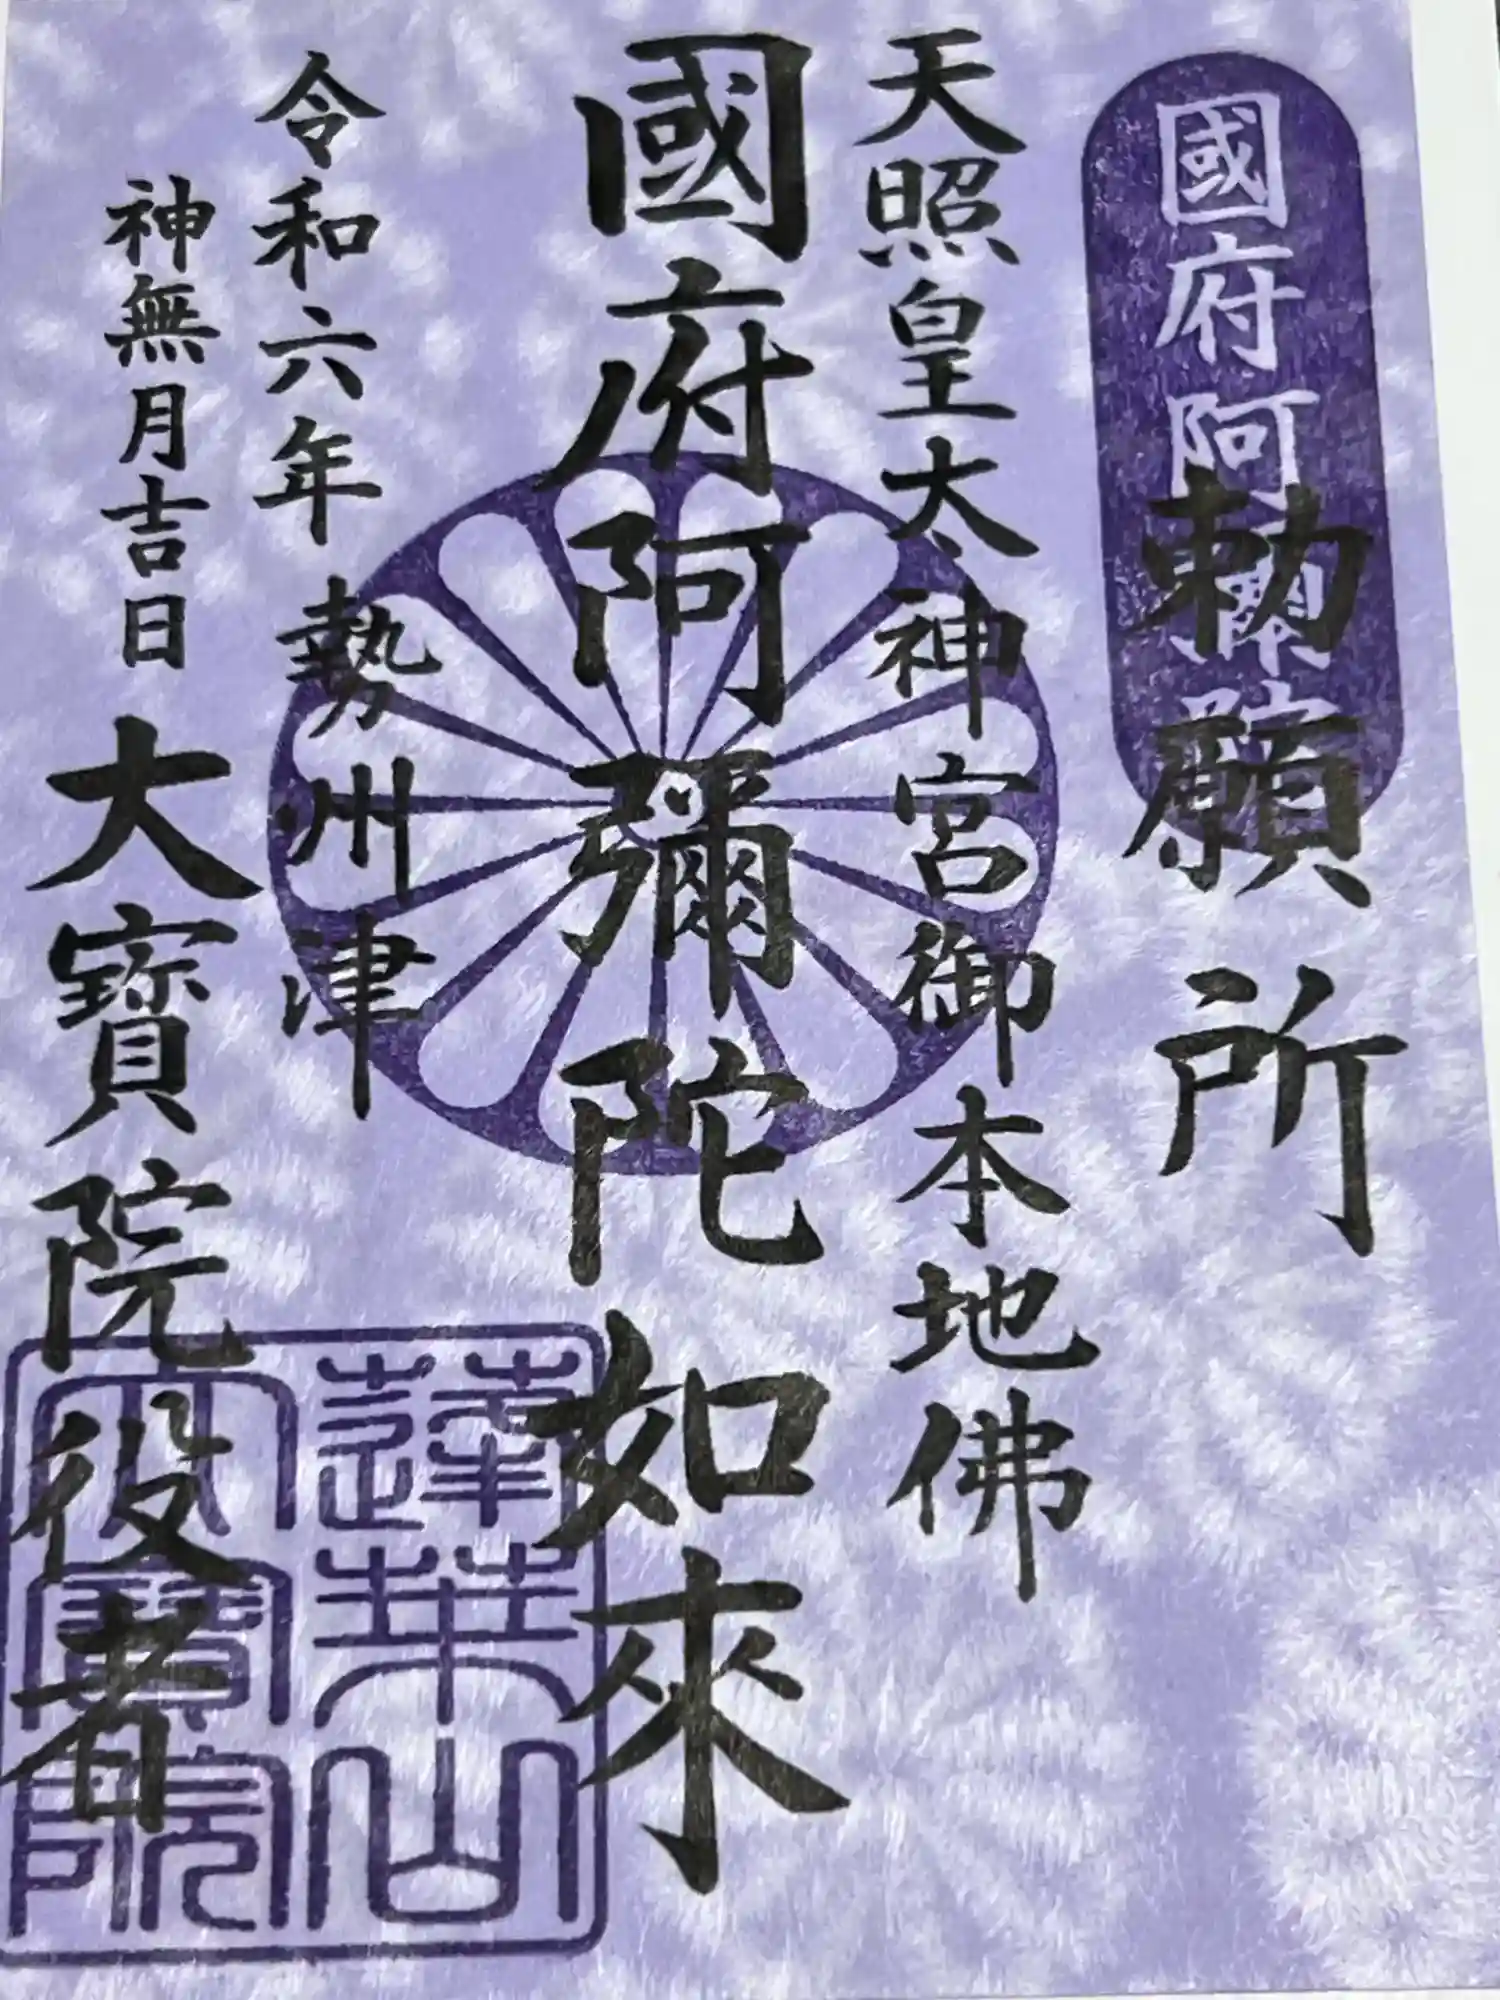 國府阿彌陀
勅願所
天照皇太神宮御本地佛
國府阿彌陀如來
令和六年
神無月吉日
勢州津
大寶院役者
蓮華山
大寶院